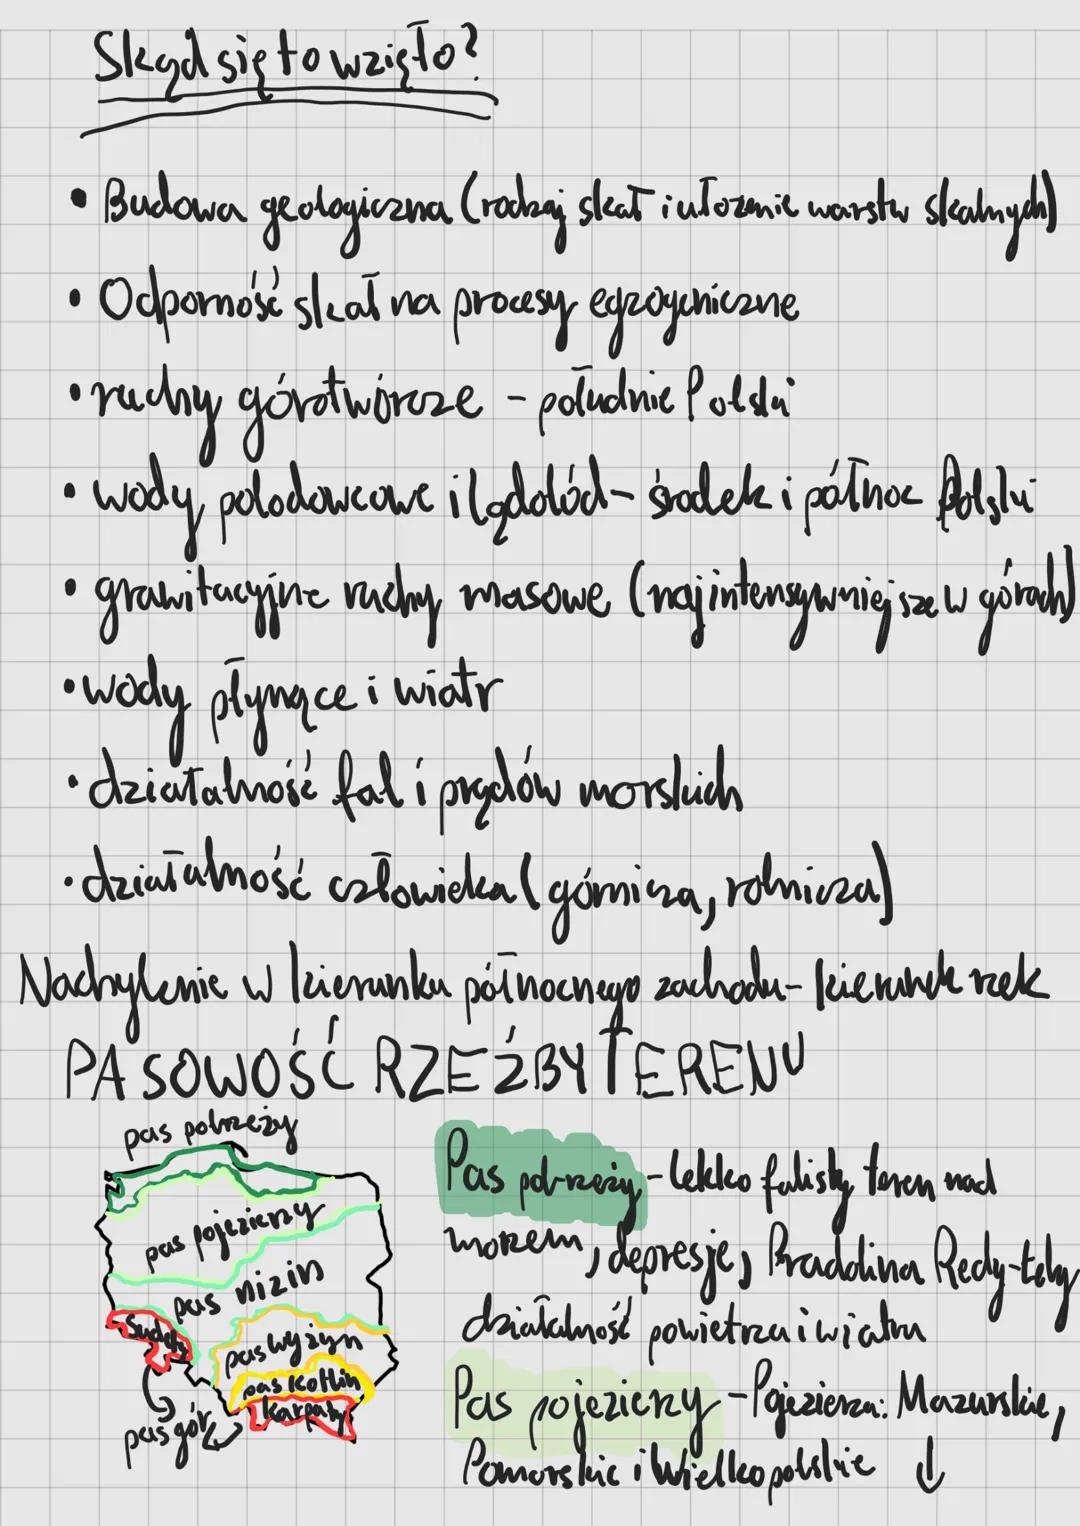 Skąd się to wzięło?
• Budowa geologiczna (rodzaj skał i ułożenie warstw skalnych)
• Odporność skał na procesy egzogeniczne
• ruchy górotwórcze - południe Polski
• wody polodowcowe i lądolód - środek i północ Polski
• grawitacyjne ruchy masowe (najintensywniejsze w górach)
• wody płynące i wiatr
• działalność fal i prądów morskich
• działalność człowieka (górnicza, rolnicza)
Nachylenie w kierunku północnego zachodu - kierunek rzek
PASOWOŚĆ RZEŹBY TERENU
pas pobrzeży
pas pojezierzy
pas nizin
Sudety
pas wyżyn
pas kotlin
Karpaty
pas gór
Pas pobrzeży - lekko falisty teren nad
morzem, depresje, Pradolina Redy-Łeby
działalność powietrza i wiatru
Pas pojezierzy - Pojezierza: Mazurskie,
Pomorskie i Wielkopolskie ↓